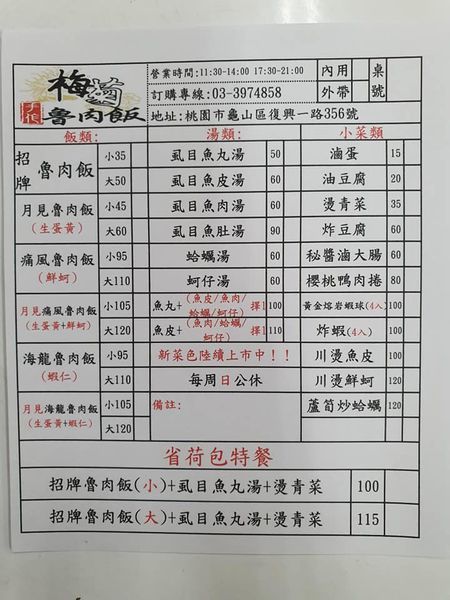 手作
梅満魯肉飯
營業時間:11:30-14:00 17:30-21:00
訂購專線:03-3974858
地址:桃園市龜山區復興一路356號
內用
外帶
桌號
飯類: 湯類: 小菜類
招牌魯肉飯 小35 大50
月見魯肉飯(生蛋黃) 小45 大60
痛風魯肉飯(鮮蚵) 小95 大110
月見痛風魯肉飯(生蛋黃+鮮蚵) 小105 大120
海龍魯肉飯(蝦仁) 小95 大110
月見海龍魯肉飯(生蛋黃+蝦仁) 小105 大120
虱目魚丸湯 50
虱目魚皮湯 60
虱目魚肉湯 60
虱目魚肚湯 90
蛤蠣湯 60
蚵仔湯 60
魚丸+(魚皮/魚肉/蛤蠣/蚵仔)擇1 100
魚皮+(魚肉/蛤蠣/蚵仔)擇1 110
新菜色陸續上市中!!
每周日公休
備註:
滷蛋 15
油豆腐 20
燙青菜 35
炸豆腐 60
秘醬滷大腸 60
櫻桃鴨肉捲 80
黃金熔岩蝦球(4入) 100
炸蝦(4入) 100
川燙魚皮 100
川燙鮮蚵 120
蘆筍炒蛤蠣 120
省荷包特餐
招牌魯肉飯(小)+虱目魚丸湯+燙青菜 100
招牌魯肉飯(大)+虱目魚丸湯+燙青菜 115